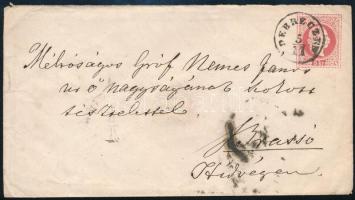 DEBRECZEN
5
11
Méltóságos Gróf Nemes János
úr ő nagyságának
tisztelettel
Brassó
Hidvégen